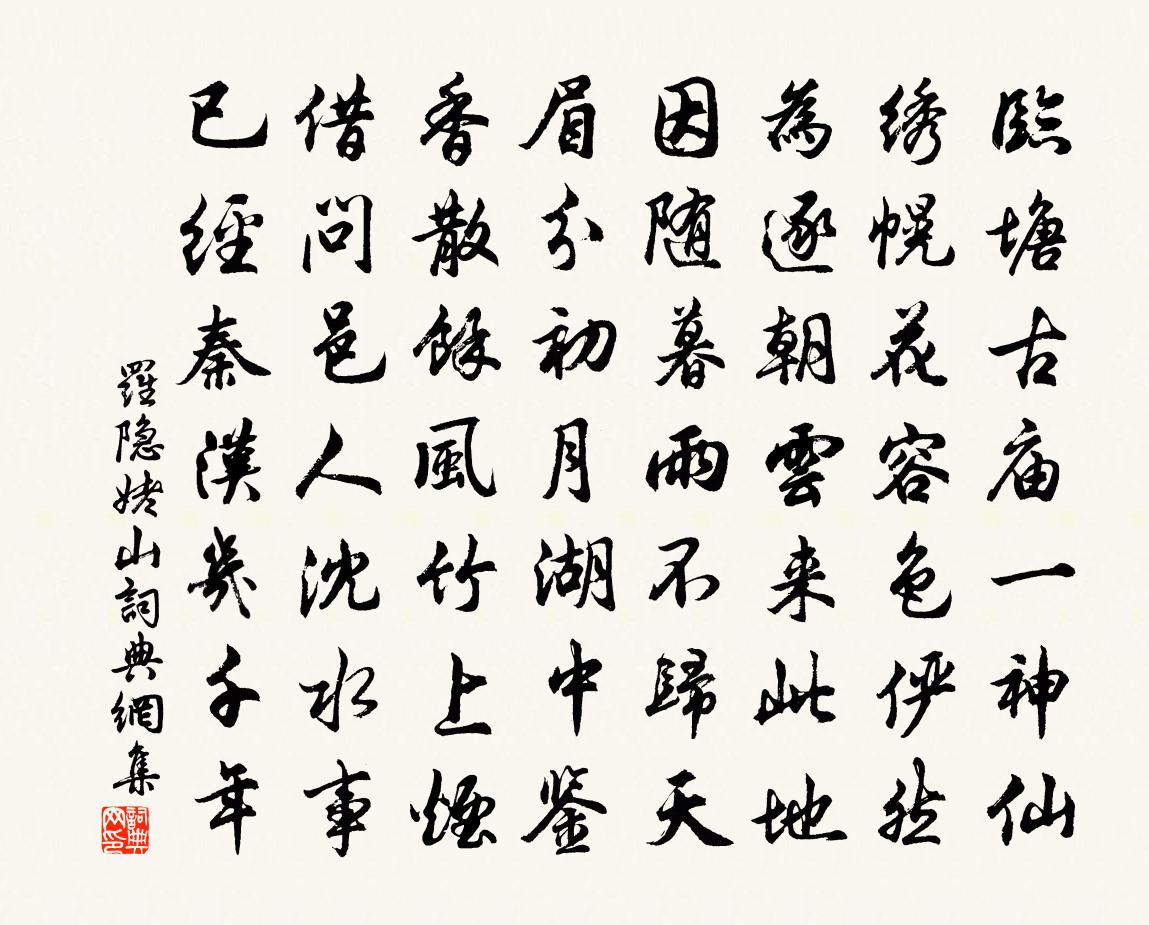 臨塘古庙一神仙
绣幌花容色俨然
為逐朝雲来此地
因随暮雨不歸天
眉分初月湖中鉴
香散餘風竹上煙
借問邑人沈水事
已經秦漢幾千年
羅隐姥山詞典網集
詞典網印